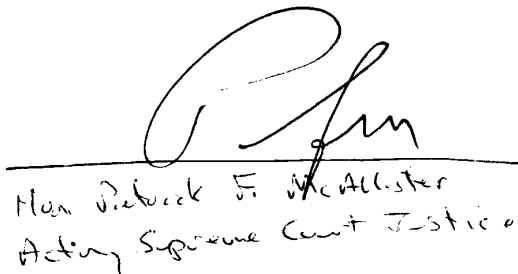 Hon Patrick F. McAllister
Acting Supreme Court Justice